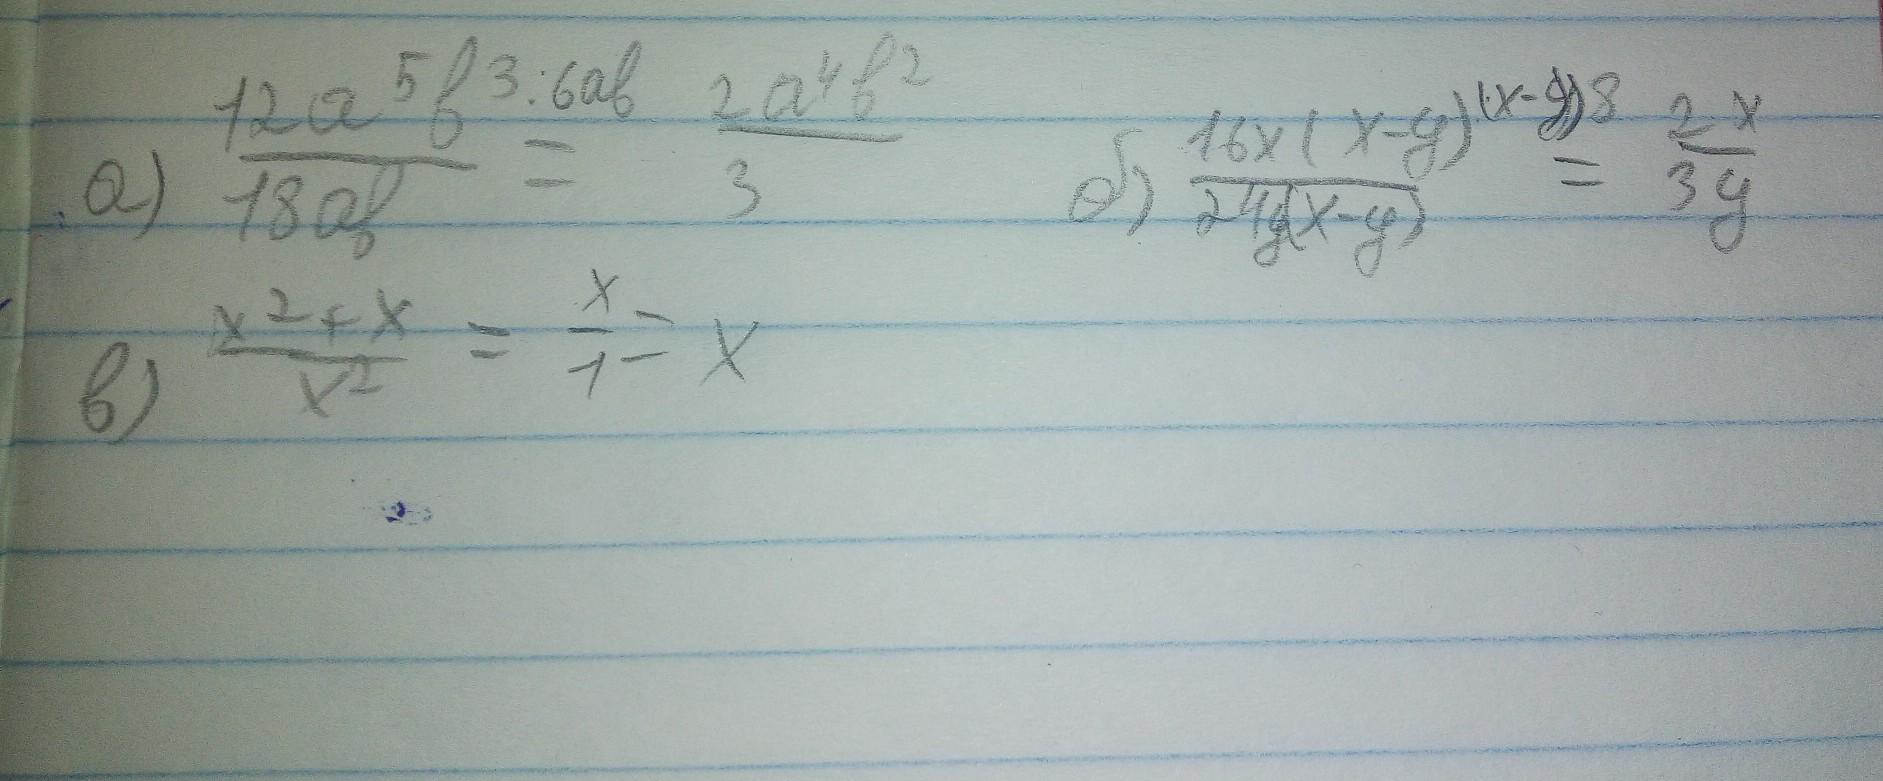 а) 12a⁵b³ :6ab / 18ab = 2a⁴b² / 3
б) 16x(x-y) (x-y)8 / 24y(x-y) = 2x / 3y
в) x²+x / x² = x / 1 = x